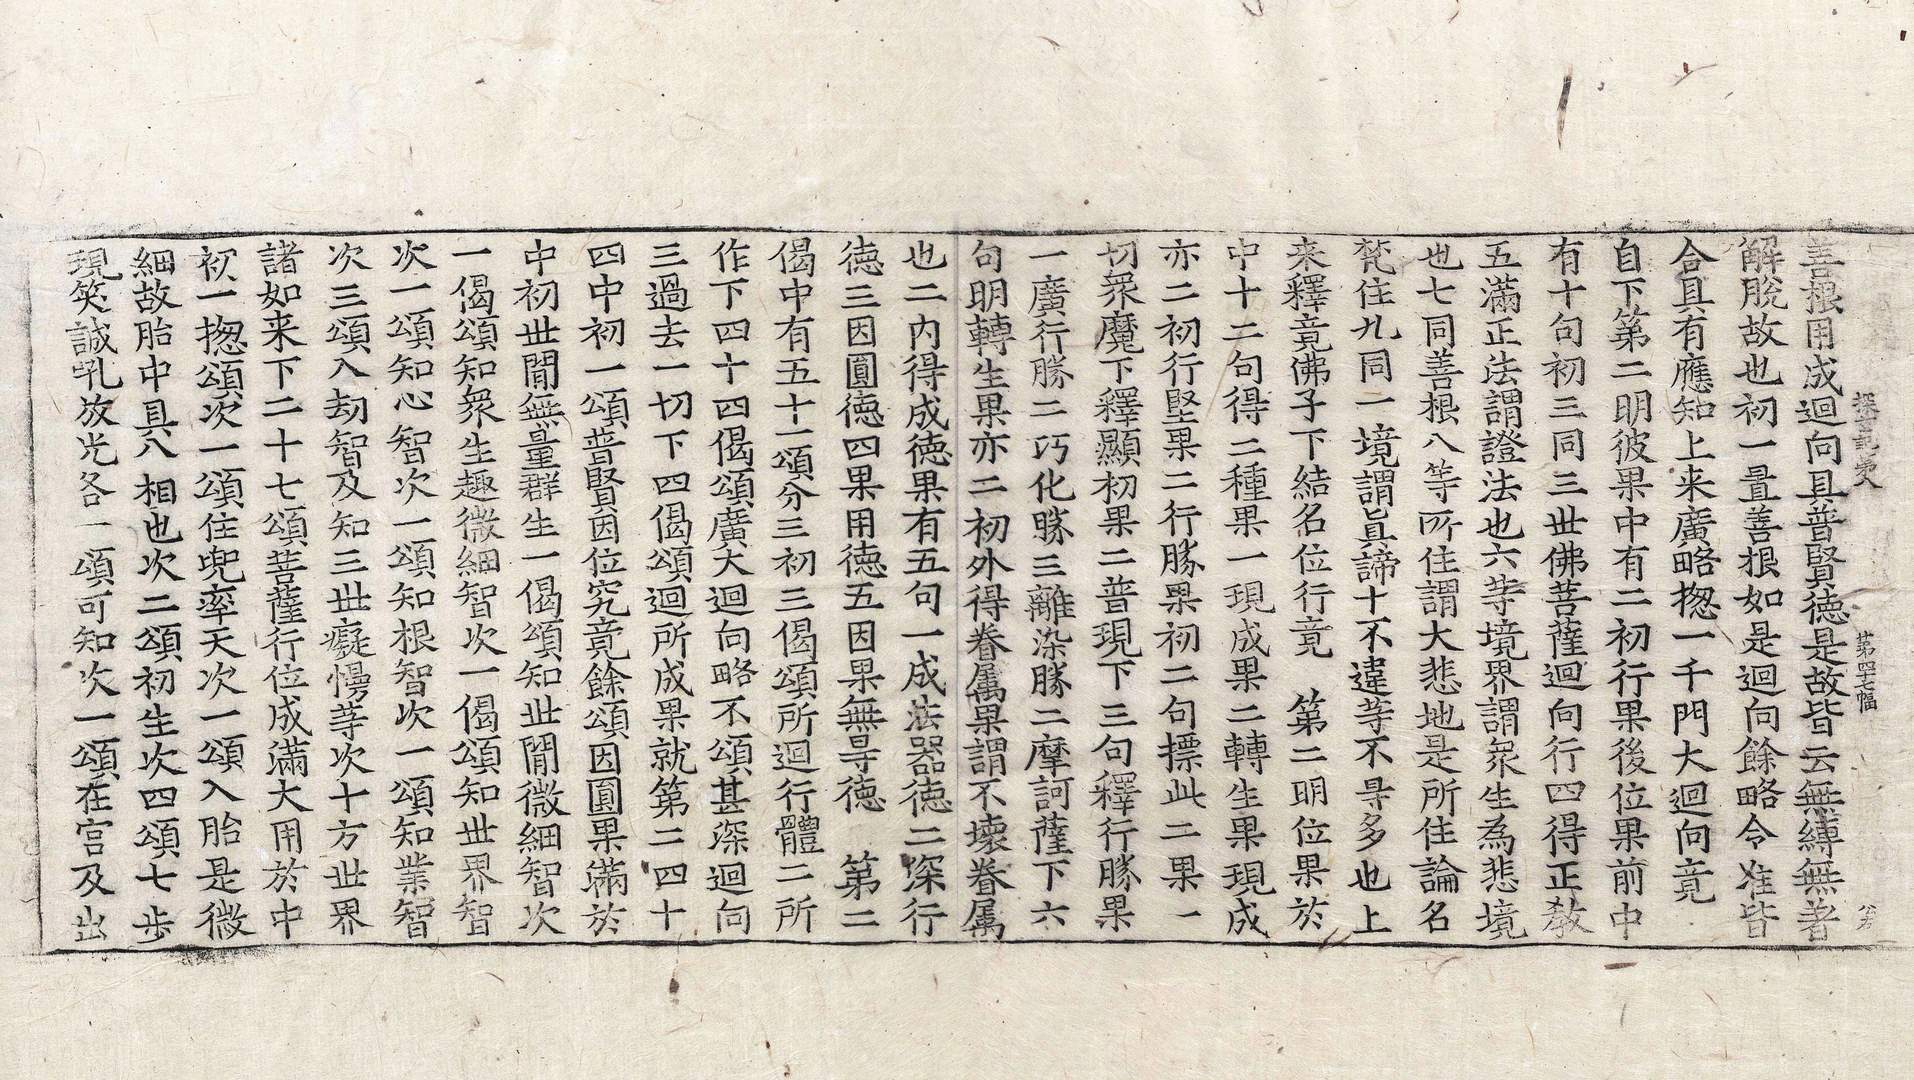 善根用成迴向具普賢德是故皆云無縛無著
探玄記第八 第四十七幅
解脫故也初一置善根如是迴向餘略令准皆
合具有應知上来廣略揔一千門大迴向竟
自下第二明彼果中有二初行果後位果前中
有十句初三同三世佛菩薩迴向行四得正教
五滿正法謂證法也六等境界謂衆生為悲境
也七同善根八等所住謂大悲地是所住論名
梵住九同一境謂真諦十不違等不㝵多也上
来釋竟佛子下結名位行竟 第二明位果於
中十二句得二種果一現成果二轉生果現成
亦二初行堅果二行勝果初二句摽此二果一
切衆魔下釋顯初果二普現下三句釋行勝果
一廣行勝二巧化勝三離染勝二摩訶薩下六
句明轉生果亦二初外得眷属果謂不壞眷属
也二内得成德果有五句一成法器德二深行
德三因圓德四果用德五因果無㝵德 第二
偈中有五十一頌分三初三偈頌所迴行體二所
作下四十四偈頌廣大迴向略不頌甚深迴向
三過去一切下四偈頌迴所成果就第二四十
四中初一頌普賢因位究竟餘頌因圓果滿於
中初世間無量群生一偈頌知世間微細智次
一偈頌知衆生趣微細智次一偈頌知世界智
次一頌知心智次一頌知根智次一頌知業智
次三頌入劫智及知三世癡慢等次十方世界
諸如来下二十七頌菩薩行位成滿大用於中
初一揔頌次一頌住兜率天次一頌入胎是微
細故胎中具八相也次二頌初生次四頌七步
現笑誠乳放光各一頌可知次一頌在宮及出